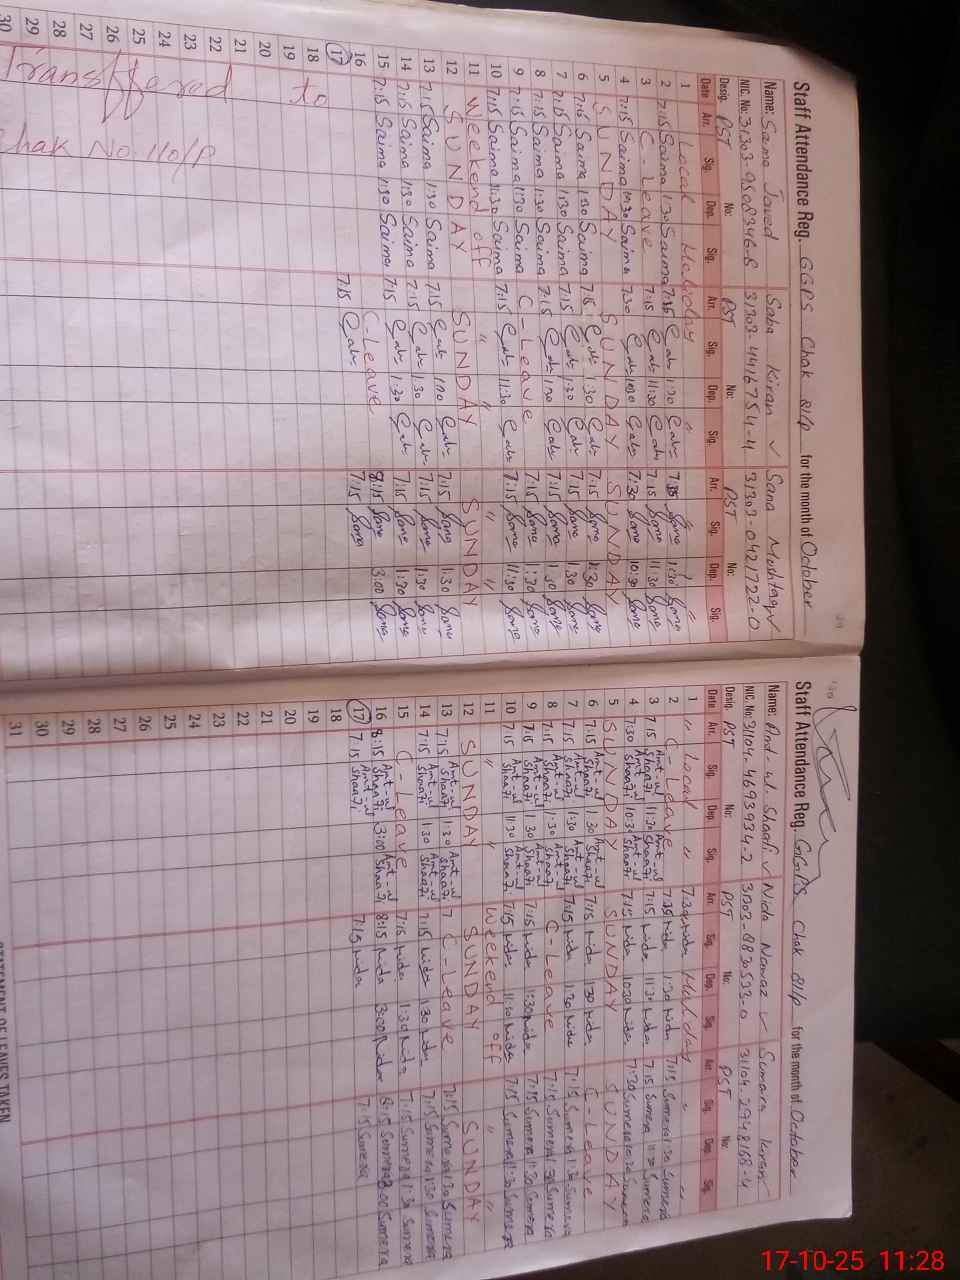 Staff Attendance Reg. GGPS Chak 81/P for the month of October
Name: Saima Javed Saba Kiran ✓ Sana Mushtaq ✓
NIC. No: 31303-9508346-8 31303-4416754-4 31303-0421722-0
Desig. PST No: PST No: PST No:
Date Arr. Sig. Dep. Sig. Arr. Sig. Dep. Sig. Arr. Sig. Dep. Sig.
1 Local Holiday " " "
2 7:15 Saima 1:30 Saima 7:15 Sab 1:30 Sab 7:15 Sana 1:30 Sana
3 C-Leave 7:15 Sab 11:30 Sab 7:15 Sana 11:30 Sana
4 7:15 Saima 10:30 Saima 7:30 Sab 10:30 Sab 7:30 Sana 10:30 Sana
5 SUNDAY SUNDAY SUNDAY
6 7:15 Saima 1:30 Saima 7:15 Sab 1:30 Sab 7:15 Sana 1:30 Sana
7 7:15 Saima 1:30 Saima 7:15 Sab 1:30 Sab 7:15 Sana 1:30 Sana
8 7:15 Saima 1:30 Saima 7:15 Sab 1:30 Sab 7:15 Sana 1:30 Sana
9 7:15 Saima 1:30 Saima C-Leave 7:15 Sana 1:30 Sana
10 7:15 Saima 11:30 Saima 7:15 Sab 11:30 Sab 7:15 Sana 11:30 Sana
11 Weekend off " " " "
12 SUNDAY SUNDAY SUNDAY
13 7:15 Saima 1:30 Saima 7:15 Sab 1:30 Sab 7:15 Sana 1:30 Sana
14 7:15 Saima 1:30 Saima 7:15 Sab 1:30 Sab 7:15 Sana 1:30 Sana
15 7:15 Saima 1:30 Saima 7:15 Sab 1:30 Sab 7:15 Sana 1:30 Sana
16 C-Leave 8:15 Sana 3:00 Sana
17 7:15 Sab 7:15 Sana
18
19
20
21
22
23
24
25
26
27
28
29
30
Transffered to
Chak No. 110/P
Staff Attendance Reg. GGPS Chak 81/P for the month of October
Name: Amt-ul-Shaafi ✓ Nida Nawaz ✓ Sumara Kiran
NIC. No: 31104-4693934-2 31303-8830593-0 31104-2948168-4
Desig. PST No: PST No: PST No:
Date Arr. Sig. Dep. Sig. Arr. Sig. Dep. Sig. Arr. Sig. Dep. Sig.
1 " Local " Holiday " "
2 C-Leave 7:15 Nida 1:30 Nida 7:15 Sumera 1:30 Sumera
3 7:15 Amt-ul Shaafi 11:30 Amt-ul Shaafi 7:15 Nida 11:30 Nida 7:15 Sumera 11:30 Sumera
4 7:30 Amt-ul Shaafi 10:30 Amt-ul Shaafi 7:15 Nida 10:30 Nida 7:30 Sumera 10:30 Sumera
5 SUNDAY SUNDAY SUNDAY
6 7:15 Amt-ul Shaafi 1:30 Amt-ul Shaafi 7:15 Nida 1:30 Nida C-Leave
7 7:15 Amt-ul Shaafi 1:30 Amt-ul Shaafi 7:15 Nida 1:30 Nida 7:15 Sumera 1:30 Sumera
8 7:15 Amt-ul Shaafi 1:30 Amt-ul Shaafi C-Leave 7:15 Sumera 1:30 Sumera
9 7:15 Amt-ul Shaafi 1:30 Amt-ul Shaafi 7:15 Nida 1:30 Nida 7:15 Sumera 1:30 Sumera
10 7:15 Amt-ul Shaafi 11:30 Amt-ul Shaafi 7:15 Nida 11:30 Nida 7:15 Sumera 11:30 Sumera
11 " " Weekend off "
12 SUNDAY SUNDAY SUNDAY
13 7:15 Amt-ul Shaafi 1:30 Amt-ul Shaafi 7 C-Leave 7:15 Sumera 1:30 Sumera
14 7:15 Amt-ul Shaafi 1:30 Amt-ul Shaafi 7:15 Nida 1:30 Nida 7:15 Sumera 1:30 Sumera
15 C-Leave 7:15 Nida 1:30 Nida 7:15 Sumera 1:30 Sumera
16 8:15 Amt-ul Shaafi 3:00 Amt-ul Shaafi 8:15 Nida 3:00 Nida 8:15 Sumera 3:00 Sumera
17 7:15 Amt-ul Shaafi 7:15 Nida 7:15 Sumera
18
19
20
21
22
23
24
25
26
27
28
29
30
31
STATEMENT OF LEAVES TAKEN
17-10-25 11:28